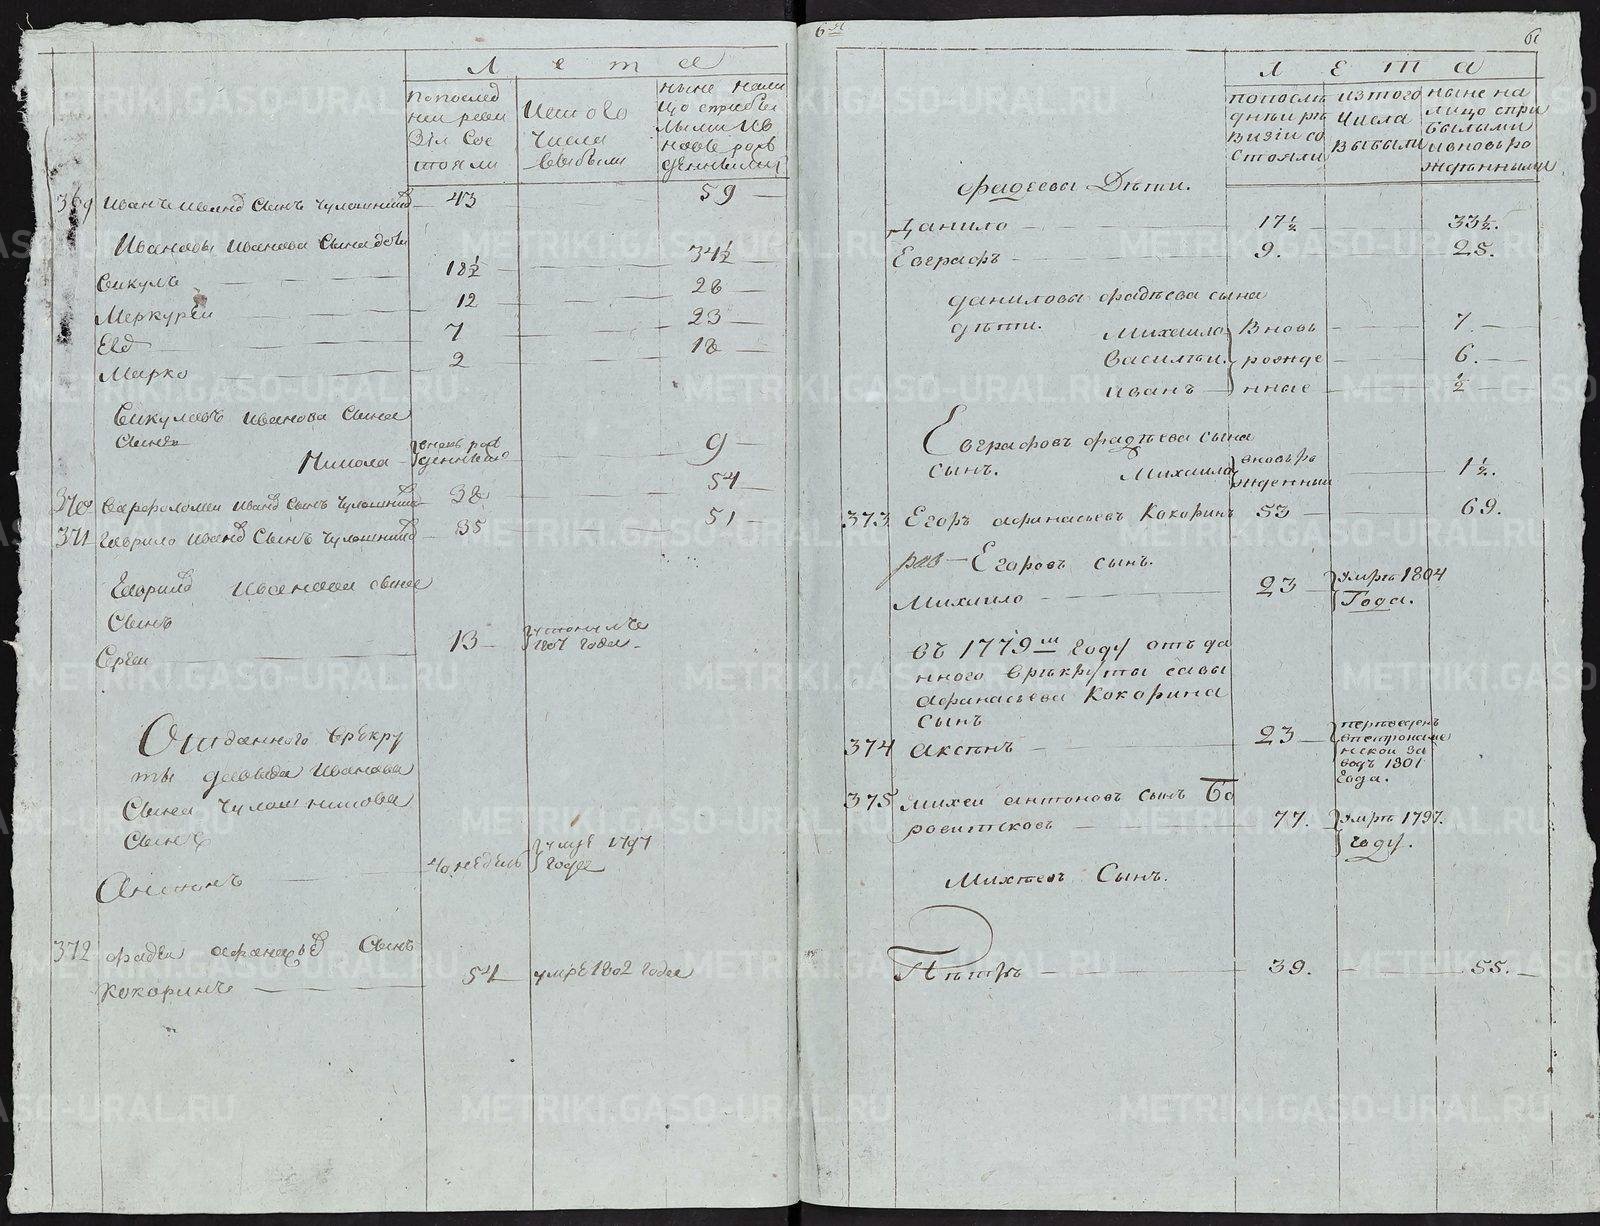 Л е т а
попослед
ней реви
зiи сос
тояли
Истого
числа
выбыли
ныне нали
цо списбы
лыми ив
новь рож
денными
369 Иванъ иванов Сынъ Чулошников 43 59
Ивановы Иванова Сына дети
Викулъ 18½ 34½
Меркурей 12 28
7 23
Марко 2 18
Викуловъ Иванова Сына
Сынъ
Никола вновь рож
денный 9
370 варфоломеи Иванов Сынъ Чулошников 38 54
371 Гаврило Иванов Сынъ Чулошников 35 51
Гаврилов Иванова сына
Сынъ
Сергеи 13 утонулъ
1807 года
Отданного врекру
ты давыда Иванова
Сына Чулошникова
Сынъ
Антонъ 40 недель умре 1797
года
372 фадеи афанасьев Сынъ
Кокоринъ 54 умре 1802 года
6й
61
Л Е т а
попослѣ
днѣи рѣ
визiи со
стояли
изтого
числа
выбыли
ныне на
лицо спри
былыми
ивновь ро
жденными
фадеевы Дѣти.
Данило 17½ 33½.
Евграфъ 9. 25.
даниловы фадѣева сына
дѣти.
Михаило вновь 7.
Василеи рожде 6.
иванъ нные ½
Евграфовъ фадѣева сына
сынъ.
Михаило вновь ро
жденныи 1½.
373. Егоръ афанасьевъ Кокоринъ 53 69.
Егоровъ сынъ.
Михаило 23 умрѣ 1804
Года.
въ 1779м году отъда
нного врѣкруты савы
афанасьева Кокорина
сынъ
374 Аксѣнъ 23 перѣведѣнъ
впетрокаме
нской за
водъ 1801
Года.
375 михеи антоновъ сынъ Бо
ровитсковъ 77. умрѣ 1797.
году.
Михѣевъ Сынъ.
Пѣтръ 39. 55.
METRIKI.GASO-URAL.RU